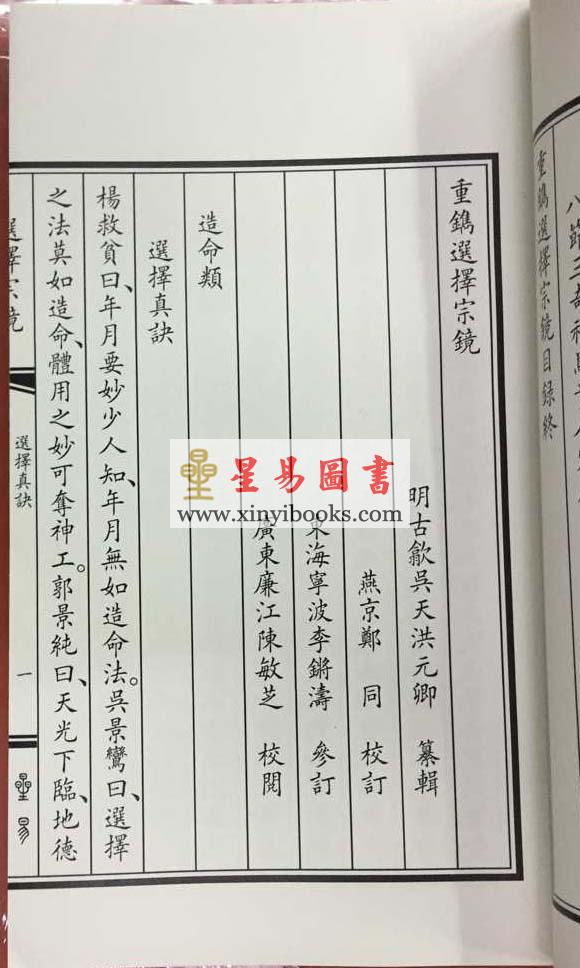 重鐫選擇宗鏡目錄終
重鐫選擇宗鏡
明古歙吳天洪元卿 纂輯
燕京鄭 同 校訂
東海寧波李鏘濤 參訂
廣東廉江陳敏芝 校閱
造命類
選擇真訣
楊救貧曰、年月要妙少人知、年月無如造命法。吳景鸞曰、選擇
之法莫如造命、體用之妙可奪神工。郭景純曰、天光下臨、地德
選擇宗鏡
選擇真訣
一
星易
星易圖書
www.xinyibooks.com